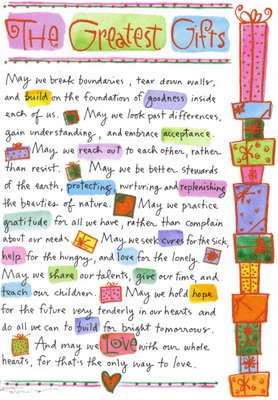 The Greatest Gifts
May we break boundaries, tear down walls,
and build on the foundation of goodness inside
each of us. May we look past differences,
gain understanding, and embrace acceptance.
May we reach out to each other, rather
than resist. May we be better stewards
of the earth, protecting, nurturing and replenishing
the beauties of nature. May we practice
gratitude for all we have, rather than complain
about our needs. May we seek cures for the sick,
help for the hungry, and love for the lonely.
May we share our talents, give our time, and
teach our children. May we hold hope
for the future very tenderly in our hearts and
do all we can to build for bright tomorrows.
And may we love with our whole
hearts, for that's the only way to love.